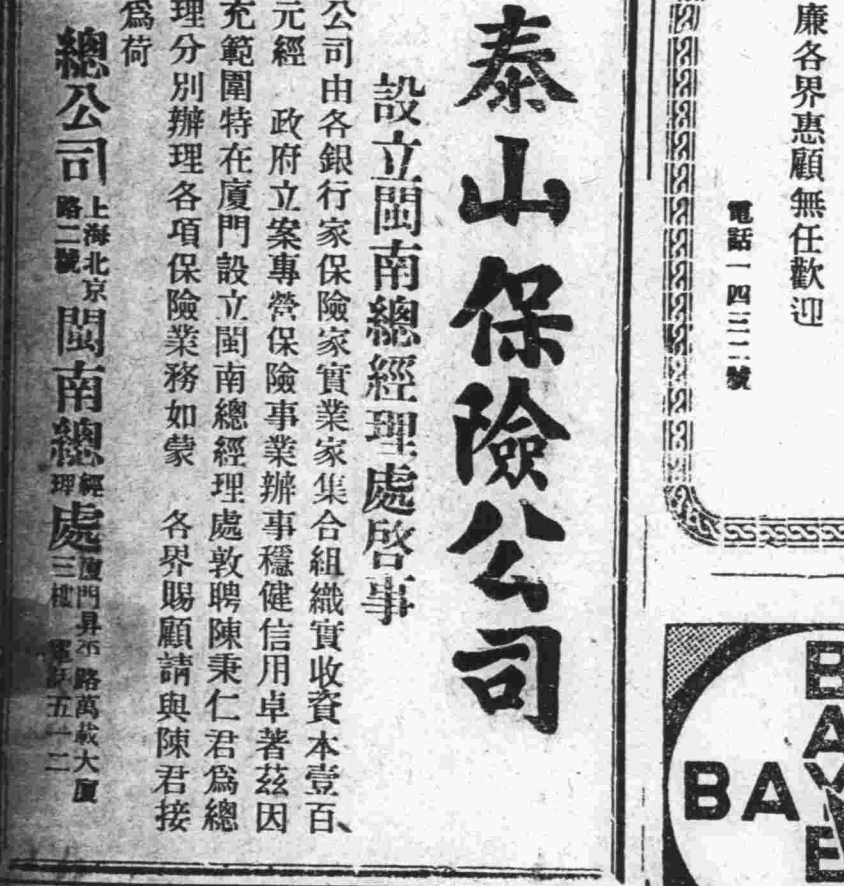 廉各界惠顧無任歡迎
電話一四三二號
泰山保險公司
設立閩南總經理處啓事
公司由各銀行家保險家實業家集合組織實收資本壹百、
元經　政府立案專營保險事業辦事穩健信用卓著茲因
充範圍特在廈門設立閩南總經理處敦聘陳秉仁君爲總
理分別辦理各項保險業務如蒙　各界賜顧請與陳君接
爲荷
總公司 上海北京路二號 閩南總經理處 廈門昇平路萬載大廈三樓 電話五一二
BAYE
BAY